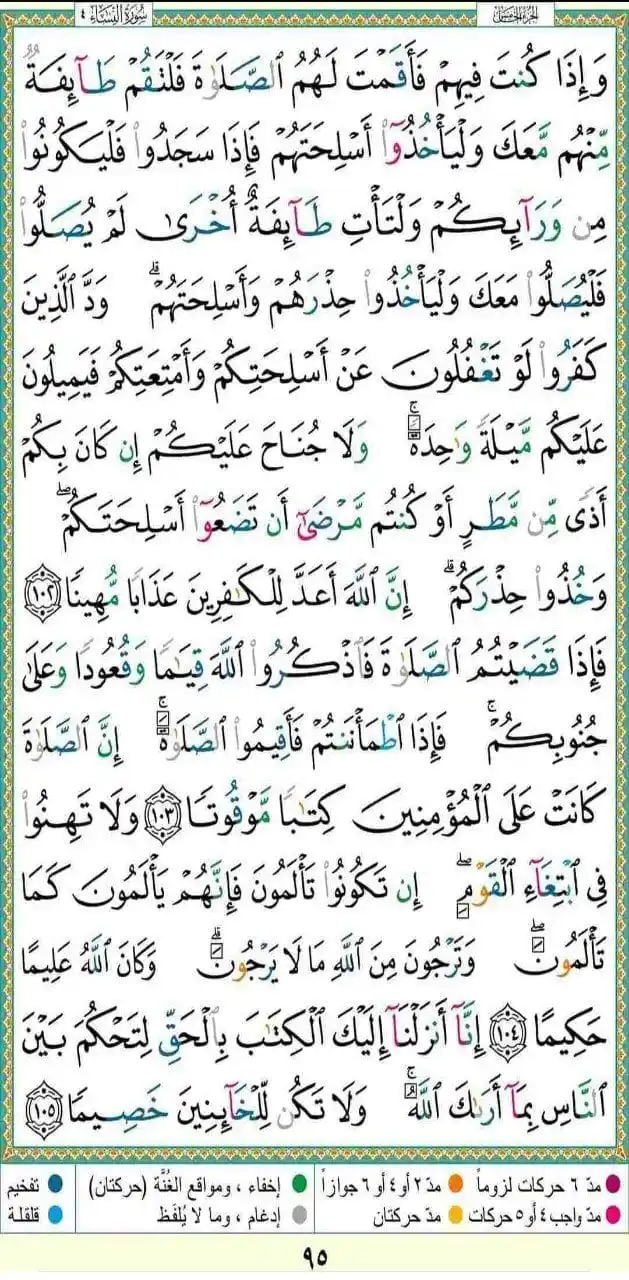 الجزء الخامس
سُورَةُ النِّسَاءِ ٤
وَإِذَا كُنتَ فِيهِمْ فَأَقَمْتَ لَهُمُ ٱلصَّلَوٰةَ فَلْتَقُمْ طَآئِفَةٌ
مِّنْهُم مَّعَكَ وَلْيَأْخُذُوٓا۟ أَسْلِحَتَهُمْ فَإِذَا سَجَدُوا۟ فَلْيَكُونُوا۟
مِن وَرَآئِكُمْ وَلْتَأْتِ طَآئِفَةٌ أُخْرَىٰ لَمْ يُصَلُّوا۟
فَلْيُصَلُّوا۟ مَعَكَ وَلْيَأْخُذُوا۟ حِذْرَهُمْ وَأَسْلِحَتَهُمْ ۗ وَدَّ ٱلَّذِينَ
كَفَرُوا۟ لَوْ تَغْفُلُونَ عَنْ أَسْلِحَتِكُمْ وَأَمْتِعَتِكُمْ فَيَمِيلُونَ
عَلَيْكُم مَّيْلَةً وَٰحِدَةً ۚ وَلَا جُنَاحَ عَلَيْكُمْ إِن كَانَ بِكُمْ
أَذًى مِّن مَّطَرٍ أَوْ كُنتُم مَّرْضَىٰٓ أَن تَضَعُوٓا۟ أَسْلِحَتَكُمْ ۖ
وَخُذُوا۟ حِذْرَكُمْ ۗ إِنَّ ٱللَّهَ أَعَدَّ لِلْكَٰفِرِينَ عَذَابًا مُّهِينًا ١٠٢
فَإِذَا قَضَيْتُمُ ٱلصَّلَوٰةَ فَٱذْكُرُوا۟ ٱللَّهَ قِيَٰمًا وَقُعُودًا وَعَلَىٰ
جُنُوبِكُمْ ۚ فَإِذَا ٱطْمَأْنَنتُمْ فَأَقِيمُوا۟ ٱلصَّلَوٰةَ ۚ إِنَّ ٱلصَّلَوٰةَ
كَانَتْ عَلَى ٱلْمُؤْمِنِينَ كِتَٰبًا مَّوْقُوتًا ١٠٣ وَلَا تَهِنُوا۟
فِى ٱبْتِغَآءِ ٱلْقَوْمِ ۖ إِن تَكُونُوا۟ تَأْلَمُونَ فَإِنَّهُمْ يَأْلَمُونَ كَمَا
تَأْلَمُونَ ۖ وَتَرْجُونَ مِنَ ٱللَّهِ مَا لَا يَرْجُونَ ۗ وَكَانَ ٱللَّهُ عَلِيمًا
حَكِيمًا ١٠٤ إِنَّآ أَنزَلْنَآ إِلَيْكَ ٱلْكِتَٰبَ بِٱلْحَقِّ لِتَحْكُمَ بَيْنَ
ٱلنَّاسِ بِمَآ أَرَىٰكَ ٱللَّهُ ۚ وَلَا تَكُن لِّلْخَآئِنِينَ خَصِيمًا ١٠٥
مدّ ٦ حركات لزوماً مدّ ٢ أو ٤ أو ٦ جوازاً إخفاء ، ومواقع الغُنَّة (حركتان) تفخيم
مدّ واجب ٤ أو ٥ حركات مدّ حركتان إدغام ، وما لا يُلفَظ قلقلة
٩٥